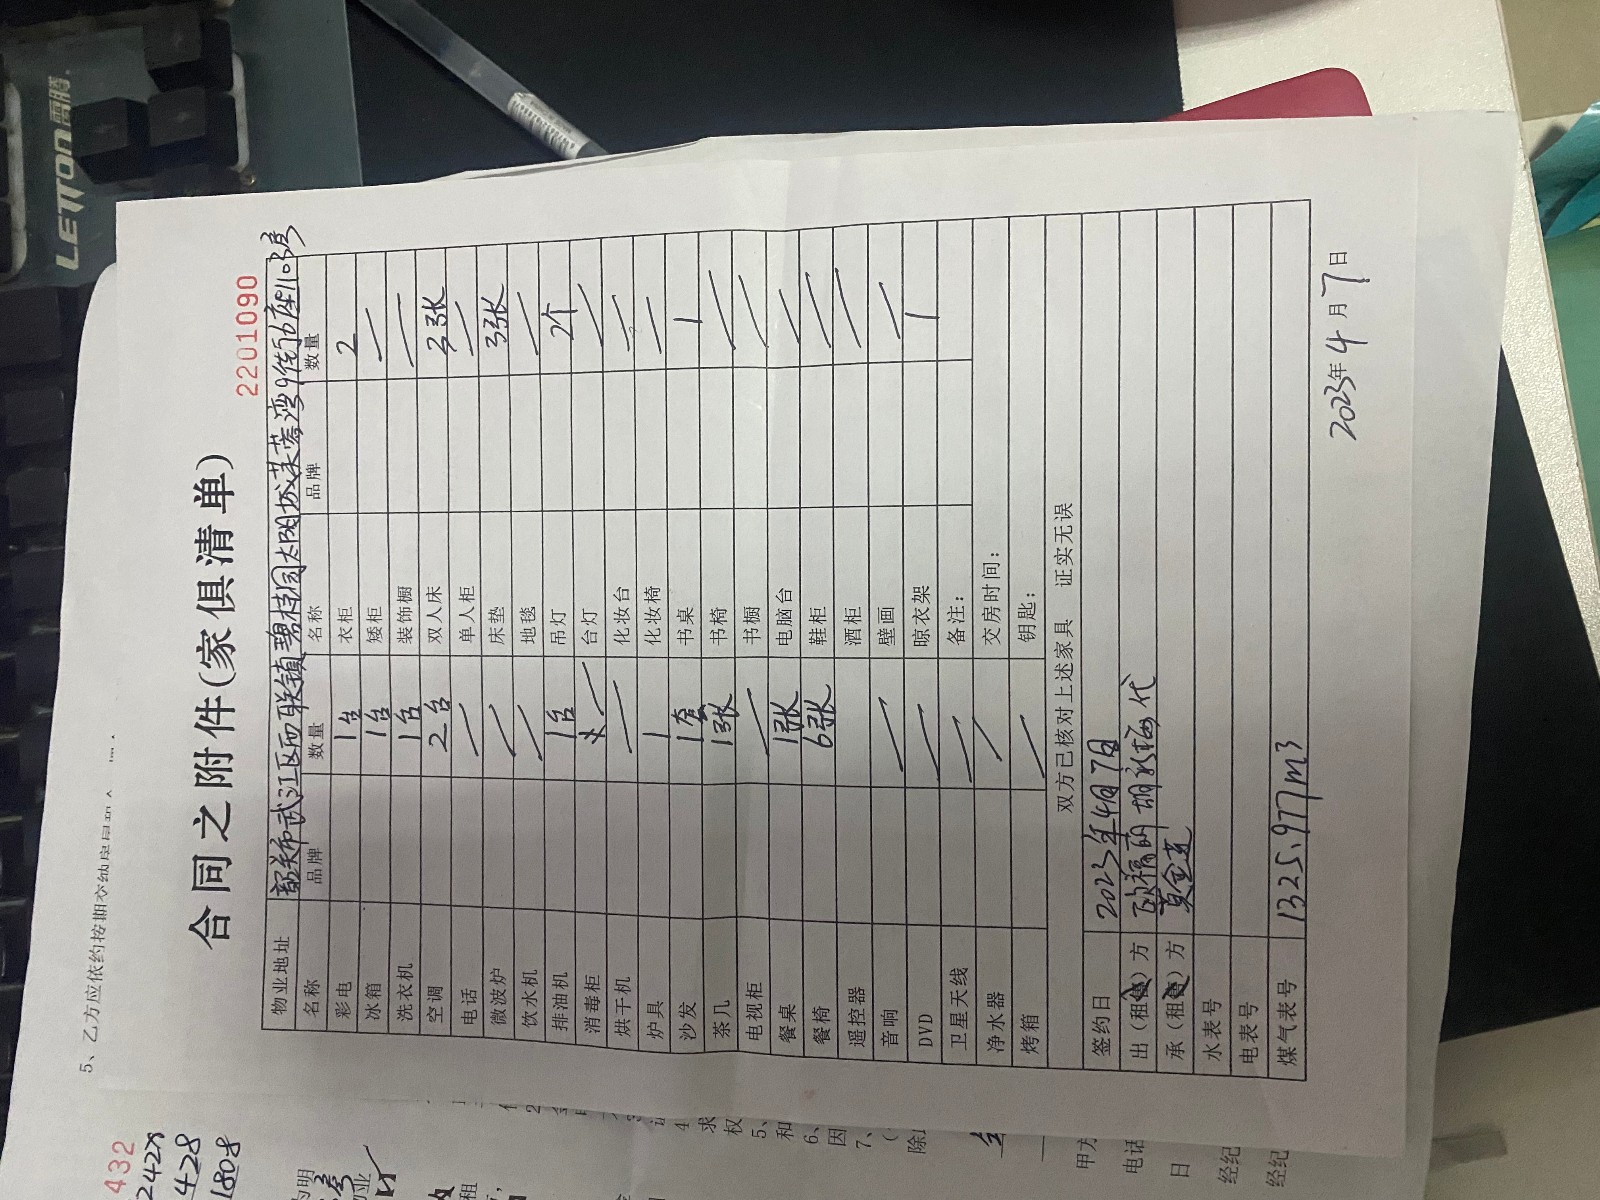 LETTON雷腾.
5、乙方应依约按期交纳
合同之附件(家俱清单)
2201090
物业地址 韶关市武江区西联镇碧桂园太阳城芙蓉湾9街5b座1103房
名称 品牌 数量 名称 品牌 数量
彩电 1台 衣柜 2
冰箱 1台 矮柜
洗衣机 1台 装饰橱
空调 2台 双人床 3张
电话 单人柜
微波炉 床垫 3张
饮水机 地毯
排油机 1台 吊灯 2个
消毒柜 台灯
烘干机 化妆台
炉具 1 化妆椅
沙发 1套 书桌 1
茶几 1张 书椅
电视柜 书橱
餐桌 1张 电脑台
餐椅 6张 鞋柜
遥控器 酒柜
音响 壁画
DVD 晾衣架 1
卫星天线 备注:
净水器 交房时间:
烤箱 钥匙:
双方已核对上述家具 证实无误
签约日 2023年4月7日
出(租售)方
承(租售)方 莫金连
水表号
电表号
煤气表号 1325.977m3
2023年4月7日
432
428
1808
4
求
权
5、
和
6、
因
7、
甲方
电话
日
经纪
经纪